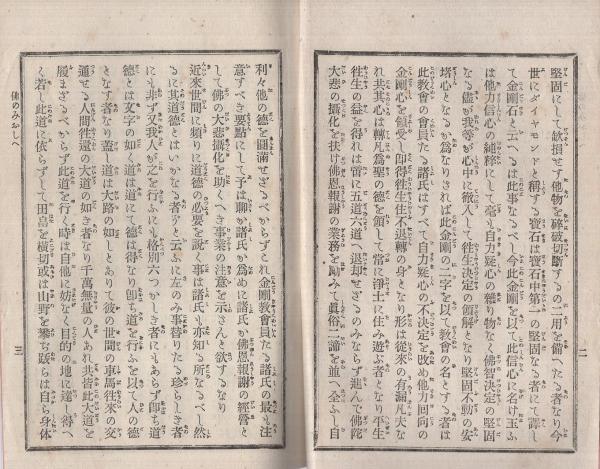 堅固にして缺損せず他物を碎破切斷するの二用を備へたる者なり今
世にダイヤモンドと稱する寳石は寳石中第一の堅固なる者にて譯し
て金剛石と云へるは此事なるべし今此金剛を以て此信心に名け玉ふ
は他力信心の純粹にして毫も自力疑心の雜り物なく佛智決定の堅固
なる儘が我等が心中に徹入して徃生決定の領解となり堅固不動の安
堵心となるが為なりされば此金剛の二字を以て教會の名とする者は
此教會の會員たる諸氏はすべて自力疑心の不決定を改め他力回向の
金剛心を領受し即得徃生住不退轉の身となり形は從來の有漏凡夫な
れ共其心は轉凡為聖の德を領して常に淨土に住み遊ぶ者となり平生
徃生の益を得れば啻に五道六道へ退却せざるのみならず進んで佛陀
大悲の攝化を扶け佛恩報謝の業務を勵みて眞俗二諦を並べ全ふし自
二
利々他の德を圓滿せざるべからずこれ金剛教會員たる諸氏の最も注
意すべき要點にして予は聊か諸氏が為めに諸氏が佛恩報謝の經營と
して佛の大悲攝化を助くべき事業の注意を示さんと欲するなり
近來世間に頻りに道德の必要を說く事は諸氏も亦知る所なるべし然
るに其道德とはいかなる者ぞと云ふに左のみ事替りたる珍らしき者
にも非ず又我人が之を行ふにも格別六つかしき者にもあらず即ち道
德とは文字の如く道は道にて德は得なり卽ち道を行ふを以て人の德
となす者なり蓋し道は大路の如しとありて彼の世間の車馬徃來の交
通せる人間徃還の大道の如き者なり千萬無量の人あれ共皆此大道を
履まざるべからず此道を行く時は自他に妨なく目的の地に達し得べ
く若し此道に依らずして田畠を橫切り或は山野を攀ぢ跋らば自ら身体
佛のみおしへ
三